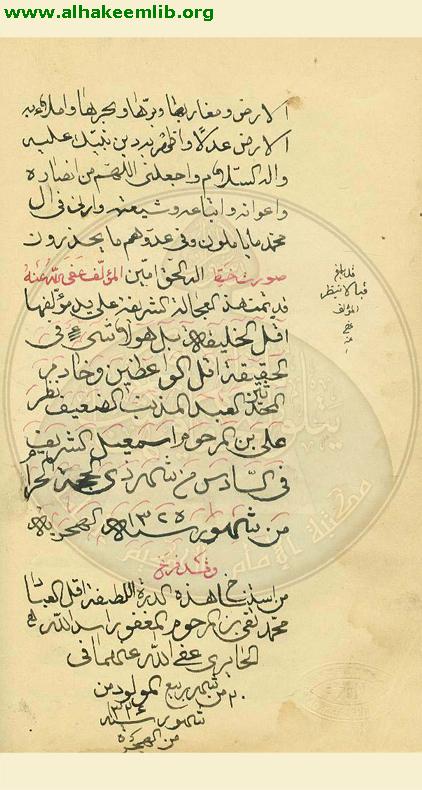 www.alhakeemlib.org
الارض ومغاربها وبرّها وبحرها واملاء به
الارض عدلا واظهر به دين نبيّك عليه
واله السّلام واجعلنی اللّهم من انصاره
واعوانه واتباعه وشيعته وارنی فی ال
محمّد ما ياملون وفی عدوهم ما يحذرون
صورت خط المؤلّف عفی اللّه عنه
قد تمت هذه العجالة الشريفة علی يد مؤلّفها
اقل الخليقة بل هو لا شیء فی
الحقيقة اقل الواعظين وخادم
المحدّثين العبد المذنب الضعيف نظر
علی بن المرحوم اسمعيل الشريف
فی السّادس من شهر ذی الحجة الحرام
من شهور سنة ١٣٢٥ الهجرية
وقد فرغ
من استنساخ هذه الدرة اقل العباد
محمّد تقی بن المرحوم المغفور اسد اللّه
الحائری عفی اللّه عنهما فی
٢٠ من شهر ربيع المولود من
شهور سنة
من الهجرة
قد بلغ
قبالا بنظر
المؤلف